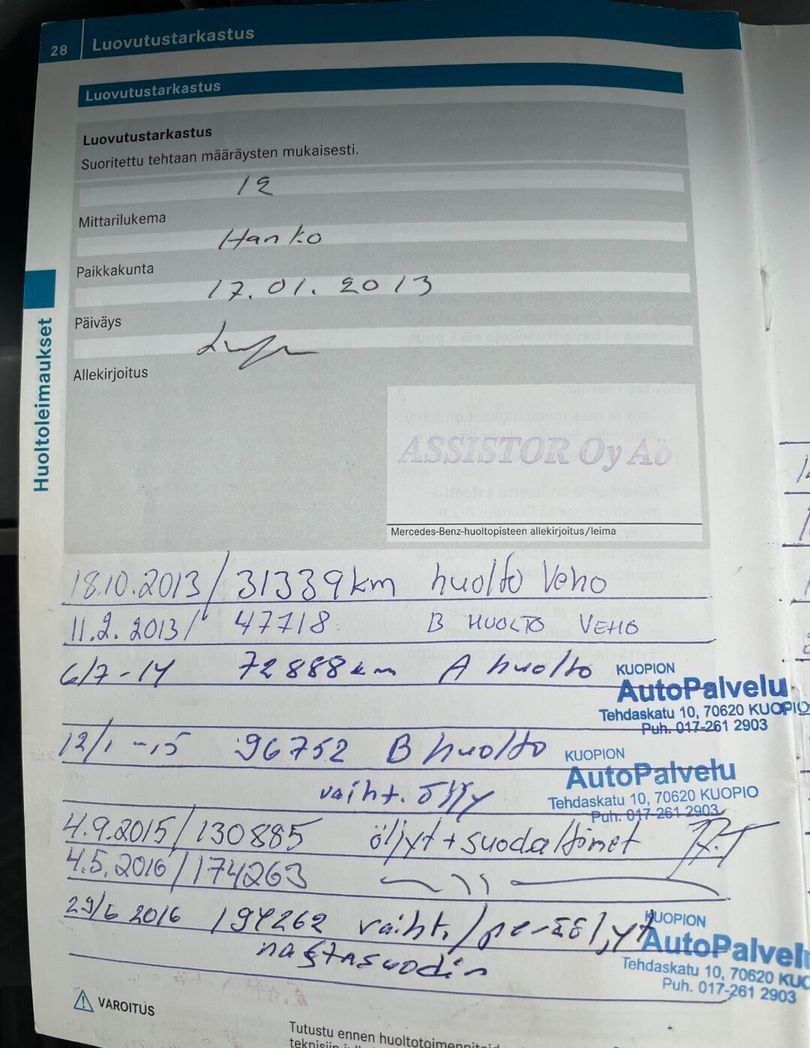 28 Luovutustarkastus
Luovutustarkastus
Luovutustarkastus
Suoritettu tehtaan määräysten mukaisesti.
12
Mittarilukema
Hanko
Paikkakunta
17.01.2013
Päiväys
Allekirjoitus
Huoltoleimaukset
ASSISTOR Oy Ab
Mercedes-Benz-huoltopisteen allekirjoitus/leima
18.10.2013/31339km huolto Veho
11.2.2013/ 47718 B HUOLTO VEHO
6/7-14 72888km A huolto
KUOPION
AutoPalvelu
Tehdaskatu 10, 70620 KUOPIO
Puh. 017-261 2903
12/1-15 96752 B huolto
vaiht. öljy
KUOPION
AutoPalvelu
Tehdaskatu 10, 70620 KUOPIO
Puh. 017-261 2903
4.9.2015/130885 öljyt+suodattimet
4.5.2016/174263 — " —
29/6 2016 194262 vaiht./peräöljyt
KUOPION
AutoPalvel
Tehdaskatu 10, 70620 KUO
Puh. 017-261 2903
VAROITUS
Tutustu ennen